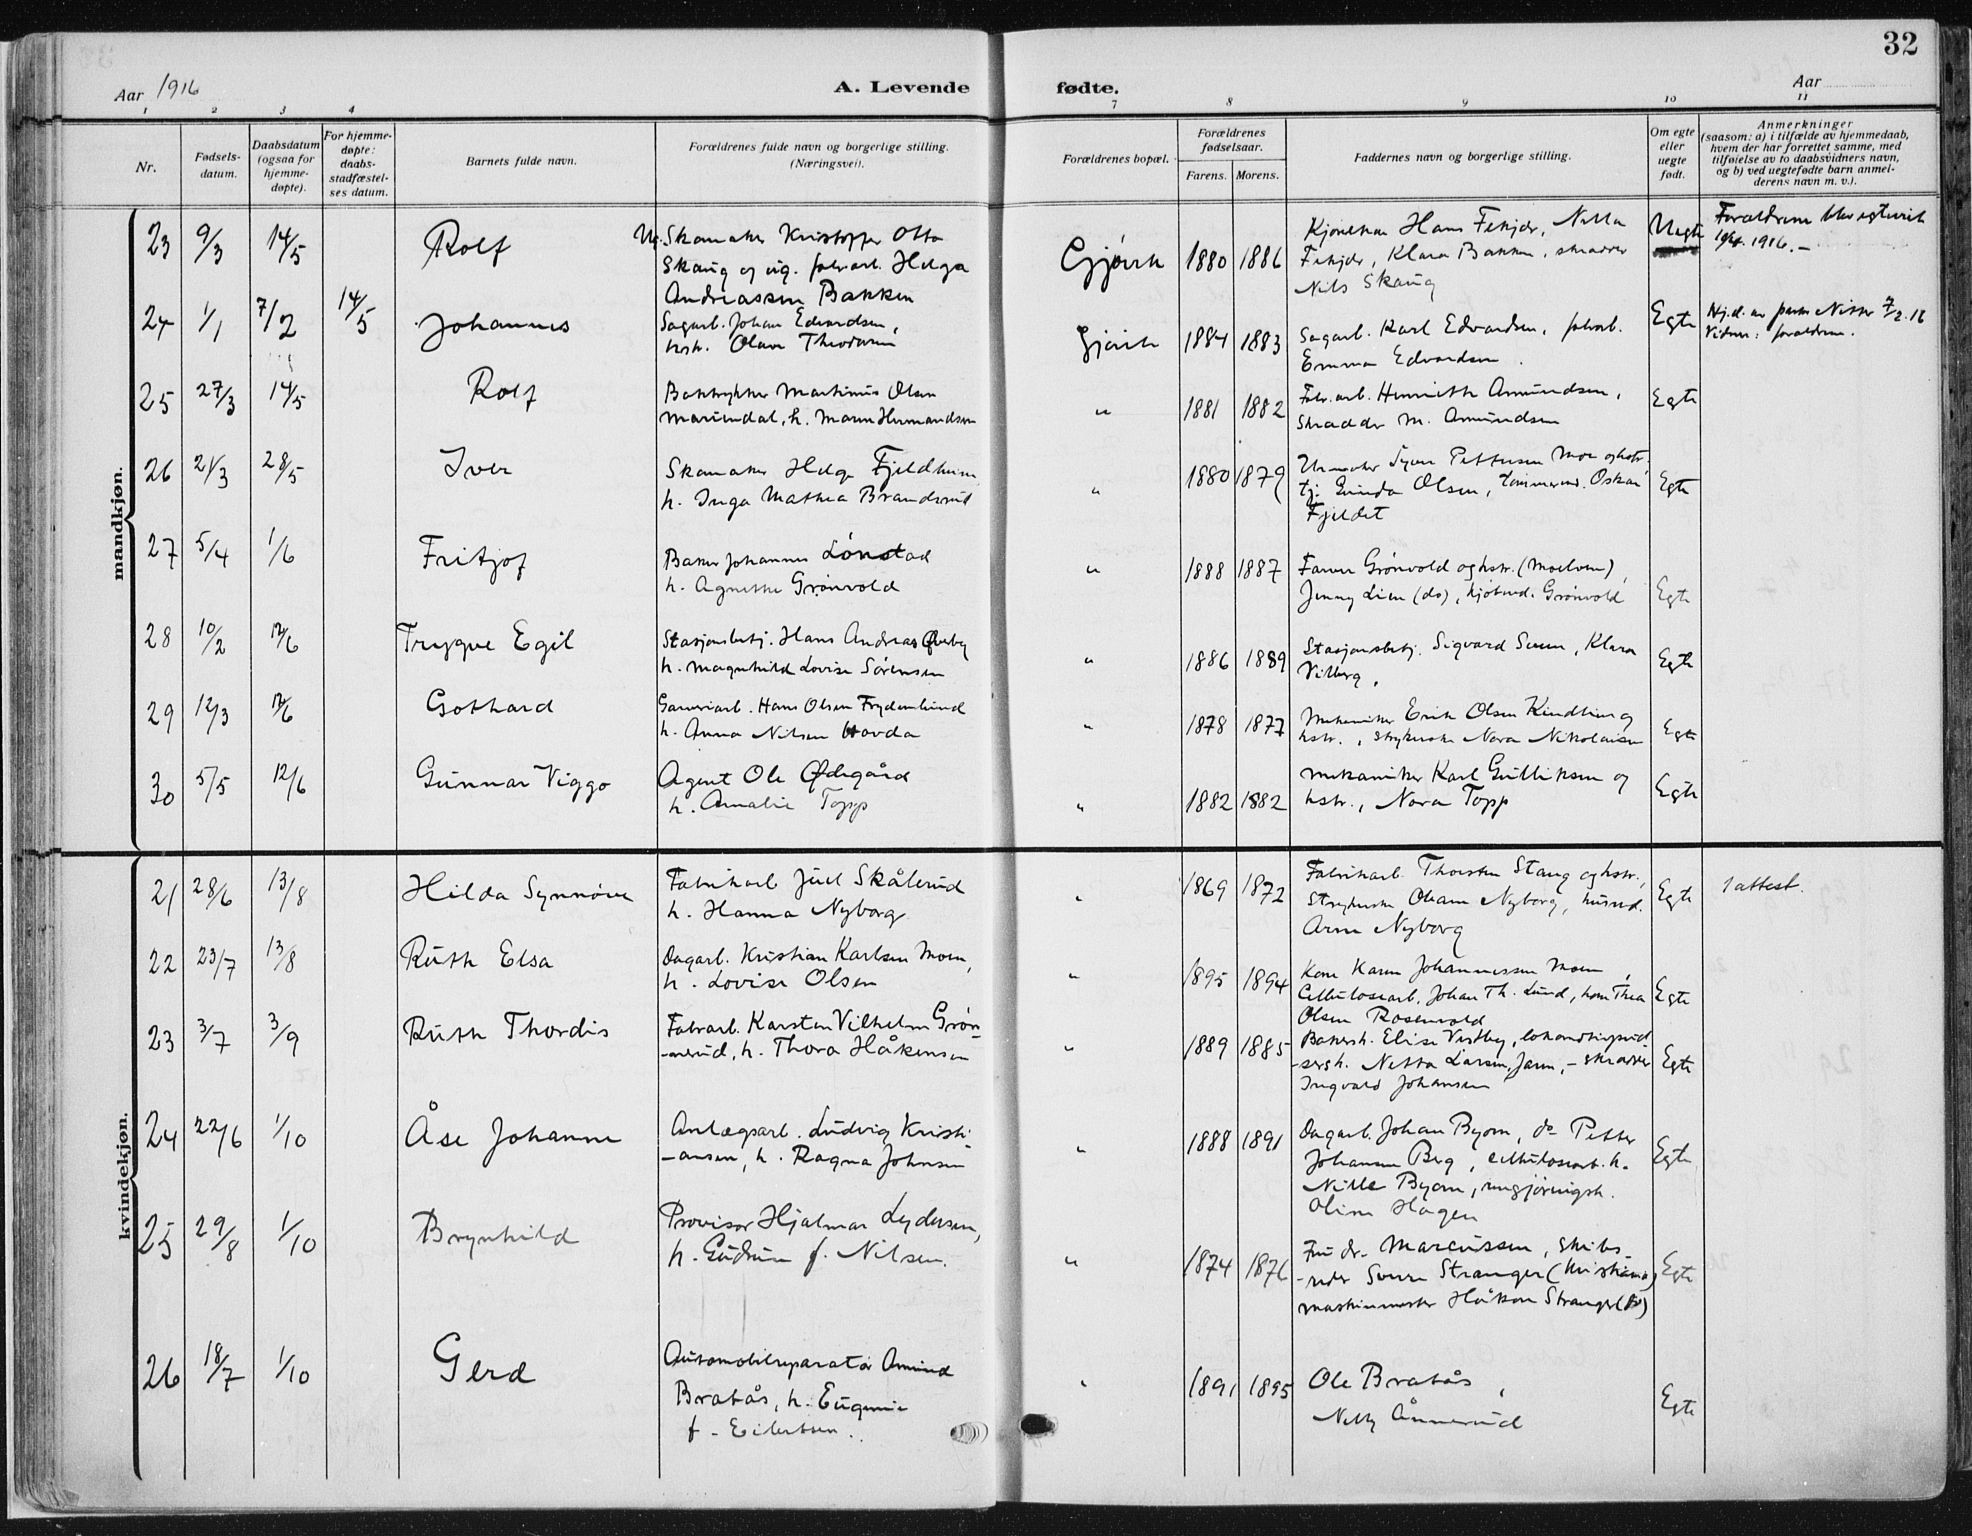 32
Aar 1916
A. Levende fødte.
Aar
1 2 3 4 7 8 9 10 11
Nr.
Fødsels-
datum.
Daabsdatum
(ogsaa for
hjemme-
døpte).
For hjemme-
døpte:
daabs-
stadfæstel-
ses datum.
Barnets fulde navn.
Forældrenes fulde navn og borgerlige stilling.
(Næringsvei).
Forældrenes bopæl.
Forældrenes
fødselsaar.
Farens. Morens.
Faddernes navn og borgerlige stilling.
Om egte
eller
uegte
født.
Anmerkninger
(saasom: a) i tilfælde av hjemmedaab,
hvem der har forrettet samme, med
tilføielse av to daabsvidners navn,
og b) ved uegtefødte barn anmel-
derens navn m. v.).
mandkjøn.
23 9/3 14/5 Rolf
Ug. Skomaker Kristoffer Otto
Skaug og ug. fabrarb. Helga
Andreassen Bakken
Gjøvik 1880 1886
Hans Fekjær, Netta
Fekjær, Klara Bakken, skrædder
Nils Skaug
Uegte
Forældrene blev egteviet
1916.-
24 1/1 7/2 14/5 Johannes
Sagarb. Johan Edvardsen,
hstr. Olava Theodorsen
Gjøvik 1884 1883
Sagarb. Karl Edvardsen, fabrarb.
Emma Edvardsen.
Egte
Hj.d. av 7/2.16
Vidner: forældrene.
25 27/3 14/5 Rolf
Boktrykker Martinius Olsen
Mariendal, h. Maren Hermandsen
" 1881 1882
Fabr.arb. Henriette Amundsen,
Skrædder M. Amundsen
Egte
26 21/3 28/5 Iver
Skomaker Helge Fjeldheim
h. Inga Mathea Brandsrud
" 1880 1879
Urmaker Syver Pettersen Moe og hstr.
tj. Gunda Olsen, tømmermd. Oskar
Fjeldet
Egte
27 5/4 1/6 Fritjof
Baker Johannes Lønstad
h. Agnethe Grønvold
" 1888 1887
Farver Grønvold og hstr. (Moelven),
Jenny Lien (do), kjøbmd. Grønvold
Egte
28 10/2 12/6 Trygve Egil
Stasjonsbetj. Hans Andreas Øverby
h. Magnhild Lovise Sørensen
" 1886 1889
Stasjonsbetj. Sigvard Suren, Klara
Vilberg.
Egte
29 12/3 12/6 Gothard
Garveriarb. Hans Olsen Frydenlund
h. Anna Nilsen Hovda
" 1878 1877
Mekaniker Erik Olsen Kindlien og
hstr., strykerske Nora Nikolaisen
Egte
30 5/5 12/6 Gunnar Viggo
Agent Ole Ødegård
h. Amalie Topp
" 1882 1882
Mekaniker Karl Gulliksen og
hstr., Nora Topp
Egte
kvindekjøn.
21 28/6 13/8 Hilda Synnøve
Fabrikarb. Juel Skålerud
h. Hanna Nyborg
" 1869 1872
Fabrikarb. Thorsten Stang og hstr.,
Strykerske Nyborg,
Arne Nyborg
Egte
1 attest.
22 23/7 13/8 Ruth Elsa
Dagarb. Kristian Karlsen Moen,
h. Lovise Olsen
" 1895 1894
Kone Karen Johannessen Moen,
Cellulosearb. Johan Th. Lund, kone Thea
Olsen Rosenvold
Egte
23 3/7 3/9 Ruth Thordis
Fabrarb. Karsten Vilhelm Grøn-
-nerud, h. Thora Håkensen
" 1889 1885
Bakersh. Elise Vestby,
Netta Larsen, Jaren, - skrædder
Ingvald Johansen
Egte
24 22/6 1/10 Åse Johanne
Anlægsarb. Ludvig Kristi-
-ansen, h. Ragna Johnsen
" 1888 1891
Dagarb. Johan Byom, do Petter
Johansen Berg, cellulosearb. h.
Nille Byom, rengjøringsh.
Oline Hagen
Egte
25 29/8 1/10 Brynhild
Provisor Hjalmar Lydersen,
h. Gudrun f. Nilsen.
" 1874 1876
Fru dr. Marcussen, skibs-
-reder Sverre Stranger (Kristiania)
maskinmester Håkon Stranger (do)
Egte
26 18/7 1/10 Gerd
Automobilreparatør Amund
Bratås, h. Eugenie
f. Eilertsen.
" 1891 1895
Ole Bratås,
Nelly Ånnerud
Egte